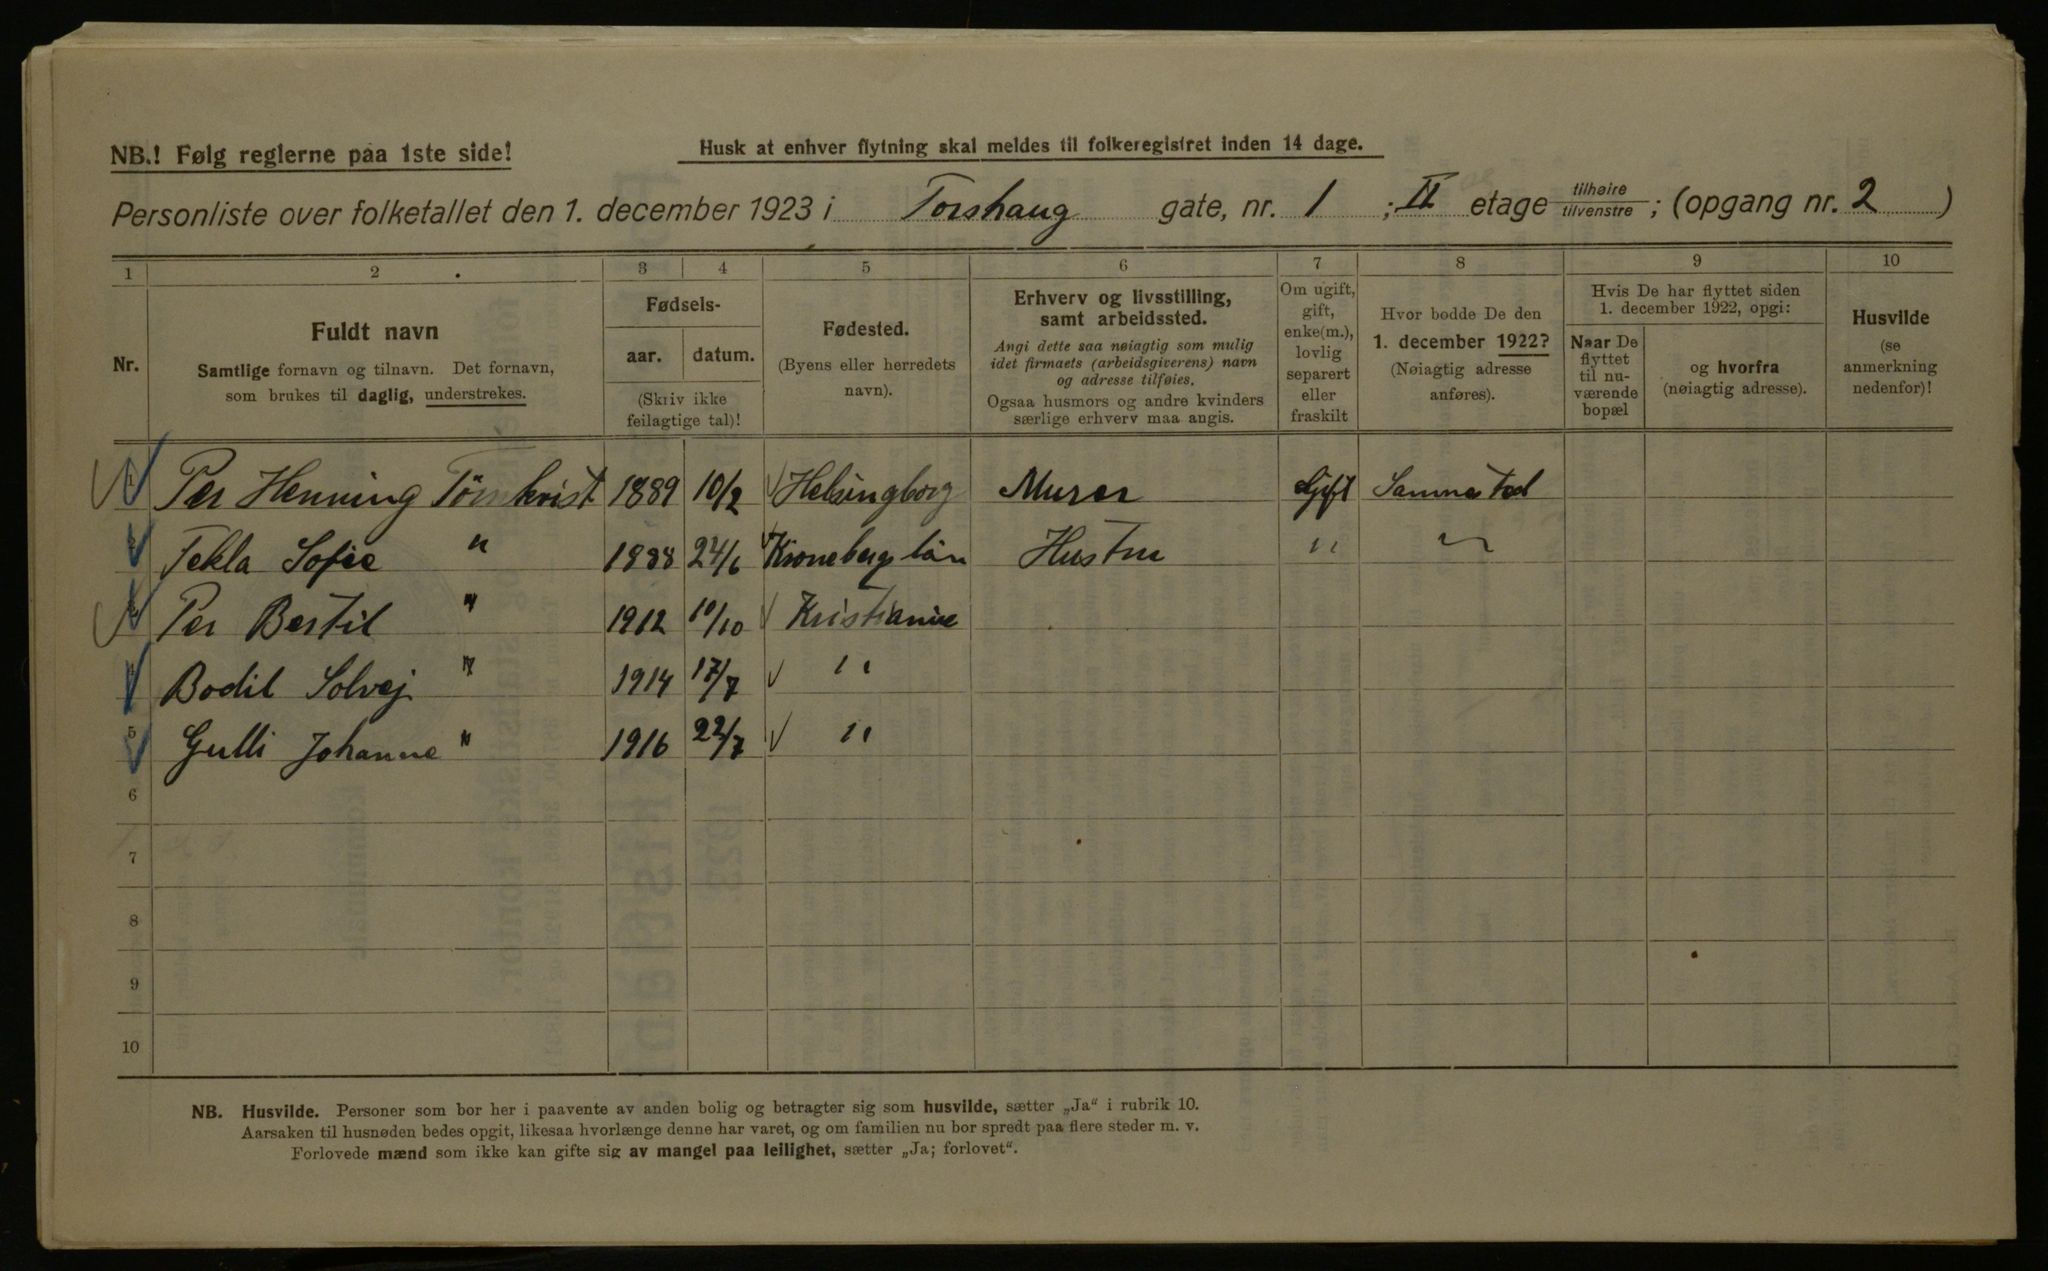 NB.! Følg reglerne paa 1ste side!
Husk at enhver flytning skal meldes til folkeregistret inden 14 dage.
Personliste over folketallet den 1. december 1923 i Torshaug gate, nr. 1 ; II etage tilhøire tilvenstre ; (opgang nr. 2 )
1 2 3 4 5 6 7 8 9 10
Nr.
Fuldt navn
Samtlige fornavn og tilnavn. Det fornavn,
som brukes til daglig, understrekes.
Fødsels-
aar. datum.
(Skriv ikke
feilagtige tal)!
Fødested.
(Byens eller herredets
navn).
Erhverv og livsstilling,
samt arbeidssted.
Angi dette saa nøiagtig som mulig
idet firmaets (arbeidsgiverens) navn
og adresse tilføies.
Ogsaa husmors og andre kvinders
særlige erhverv maa angis.
Om ugift,
gift,
enke(m.),
lovlig
separert
eller
fraskilt
Hvor bodde De den
1. december 1922?
(Nøiagtig adresse
anføres).
Hvis De har flyttet siden
1. december 1922, opgi:
Naar De
flyttet
til nu-
værende
bopæl
og hvorfra
(nøiagtig adresse).
Husvilde
(se
anmerkning
nedenfor)!
Per Henning Törnkvist 1889 10/2 Helsingborg Murer Gift Sammested
Tekla Sofie " 1888 24/6 Kronebergs län Hustru " "
Per Bertil " 1912 10/10 Kristiania
Bodil Solvej " 1914 17/7 "
5 Gulli Johanne " 1916 22/7 "
6
7
8
9
10
NB. Husvilde. Personer som bor her i paavente av anden bolig og betragter sig som husvilde, sætter „Ja“ i rubrik 10.
Aarsaken til husnøden bedes opgit, likesaa hvorlænge denne har varet, og om familien nu bor spredt paa flere steder m. v.
Forlovede mænd som ikke kan gifte sig av mangel paa leilighet, sætter „Ja; forlovet“.